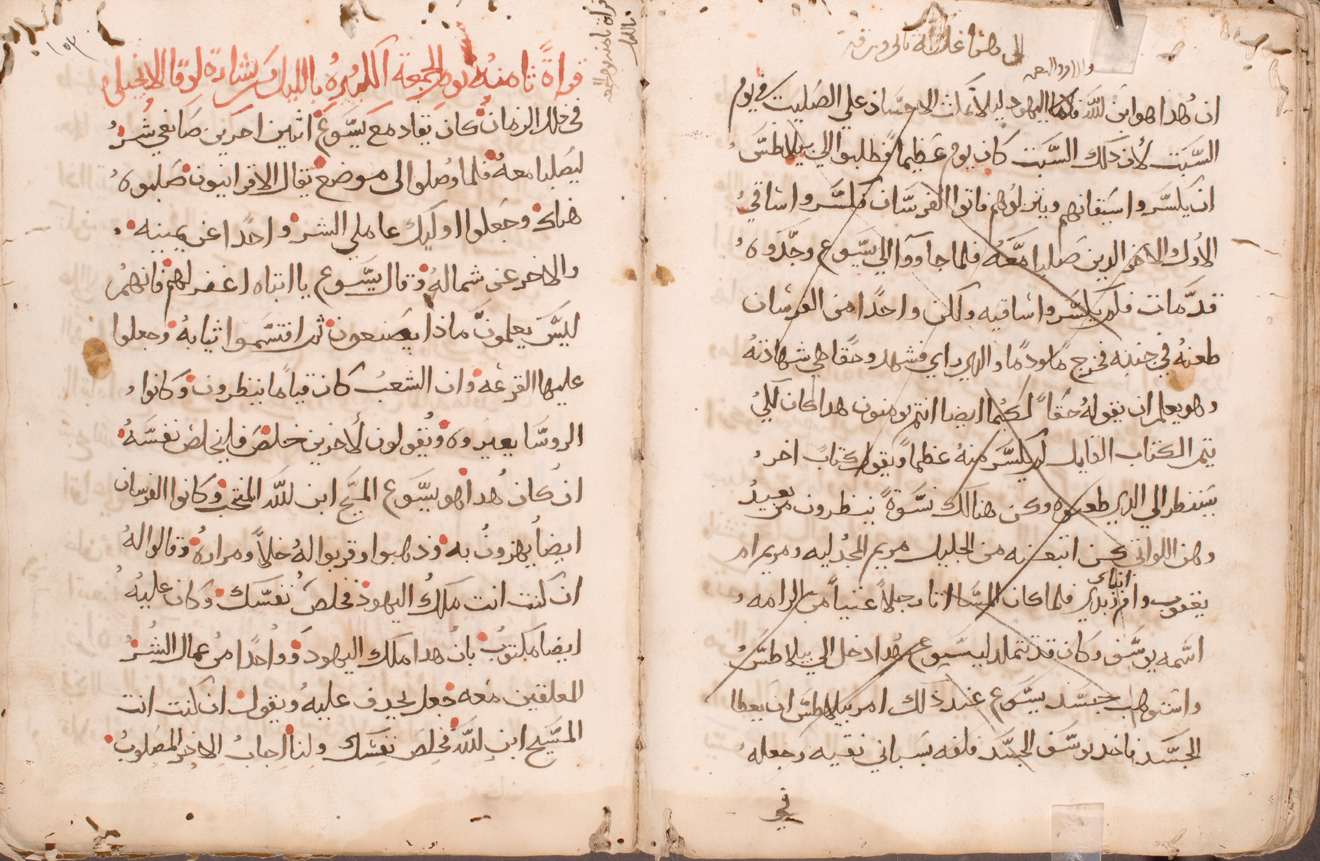 ان هدا هو ابن الله فاما اليهود ليلا تمات الاجساد علي الصليب في يوم
السبت لان ذلك السبت كان يوم عظيما فطلبوا الي بيلاطس
ان يكسروا اسيقانهم وينزلوهم فاتوا الفرسان فكسروا اساقي
الاول والاخر الدين صلبا معه فلما جاووا الي يسوع وجدوه
قد مات فلم يكسروا ساقيه ولكن واحدا من الفرسان
طعنه في جنبه فخرج ما ودما والدي راي شهد وحقا هي شهادته
وهو يعلم ان يقوله حقا لكيما ايضا انتم تومنون هدا كان لكي
يتم الكتاب القايل لم يكسر منه عظما ويقول كتاب اخر
سينظر الى الدي طعنوه وكن هنالك نسوة ينظرون من بعيد
وهن اللواتي كن اتبعنه من الجليل مريم المجدليه ومريم ام
يعقوب وام زبدي فلما كان المسا اتا رجلا غنيا من الرامه
اسمه يوسف وكان قد تتلمد ليسوع هدا دخل الي بيلاطس
واستوهب جسد يسوع عند ذلك امر بيلاطس ان يعطا
الجسد فاخد يوسف الجسد ولفه بسباني نقيه وجعله
في
قراة ثامنه يوم الجمعة الكبيره بالليل من بشارة لوقا الانجيلي
في ذلك الزمان كان يقاد مع يسوع اثنين اخرين صانعي شر
ليصلبا معه فلما وصلوا الى موضع يقال الاقرانيون صلبوه
هناك وجعلوا اوليك عاملي الشر واحدا عن يمينه
والاخر عن شماله وقال يسوع يا ابتاه اغفر لهم فانهم
ليس يعلمون ماذا يصنعون ثم اقتسموا ثيابه وجعلوا
عليها القرعه وان الشعب كان قياما ينظرون وكانوا
الروسا يعيروه ويقولون لاخرين خلص فليخلص نفسه
ان كان هدا هو يسوع المسيح ابن الله المنتخب وكانوا الفرسان
ايضا يهزون به وذهبوا وقربوا له خلا ومراره وقالوا له
ان كنت انت ملك اليهود فخلص نفسك وكان عليه
ايضا مكتوب بان هدا ملك اليهود وواحدا من عمال الشر
المعلقين معه جعل يجدف عليه ويقول ان كنت انت
المسيح ابن الله فخلص نفسك ولنا اجاب الاخر المصلوب